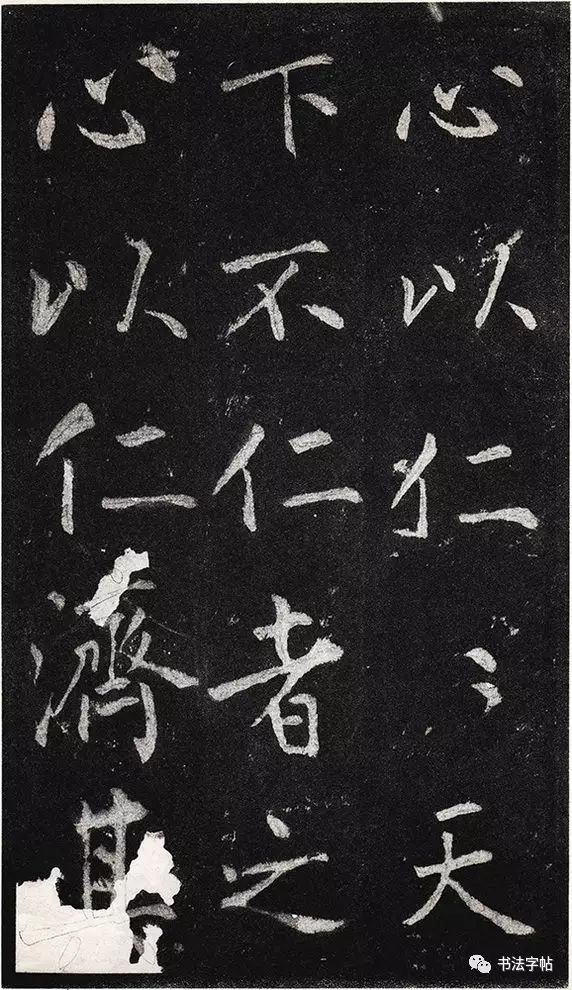 心以仁〻天
下不仁者之
心以仁濟其
书法字帖